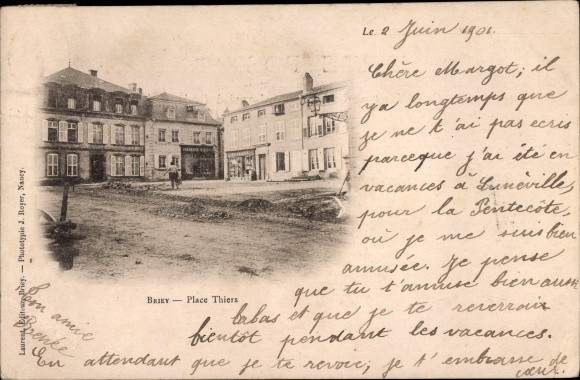 Le 2 Juin 1901.
Chère Margot; il
y a longtemps que
je ne t'ai pas ecris
parceque j'ai été en
vacances à Lunéville,
pour la Pentecôte,
où je me suis bien
amusée. Je pense
que tu t'amuse bien aussi
labas et que je te reverrair
bientôt pendant les vacances.
En attendant que je te revoie, je t'embrasse de
cœur.
Ton amie
BRIEY — Place Thiers
Laurent, Éditeur, Briey. — Phototypie J. Royer, Nancy.